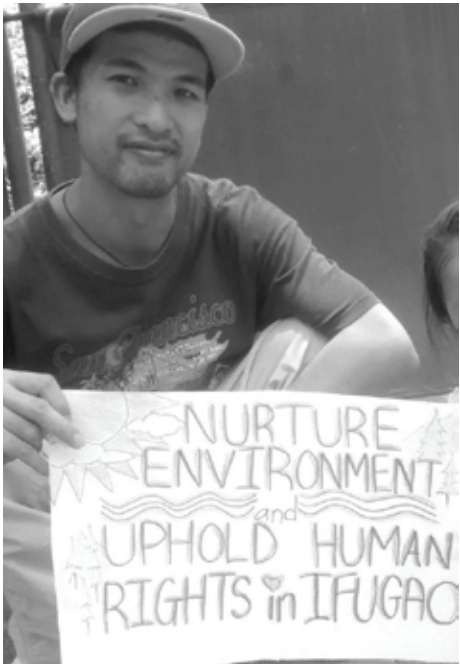 San Francisco
NURTURE
ENVIRONMENT
and
UPHOLD HUMAN
RIGHTS in IFUGAO